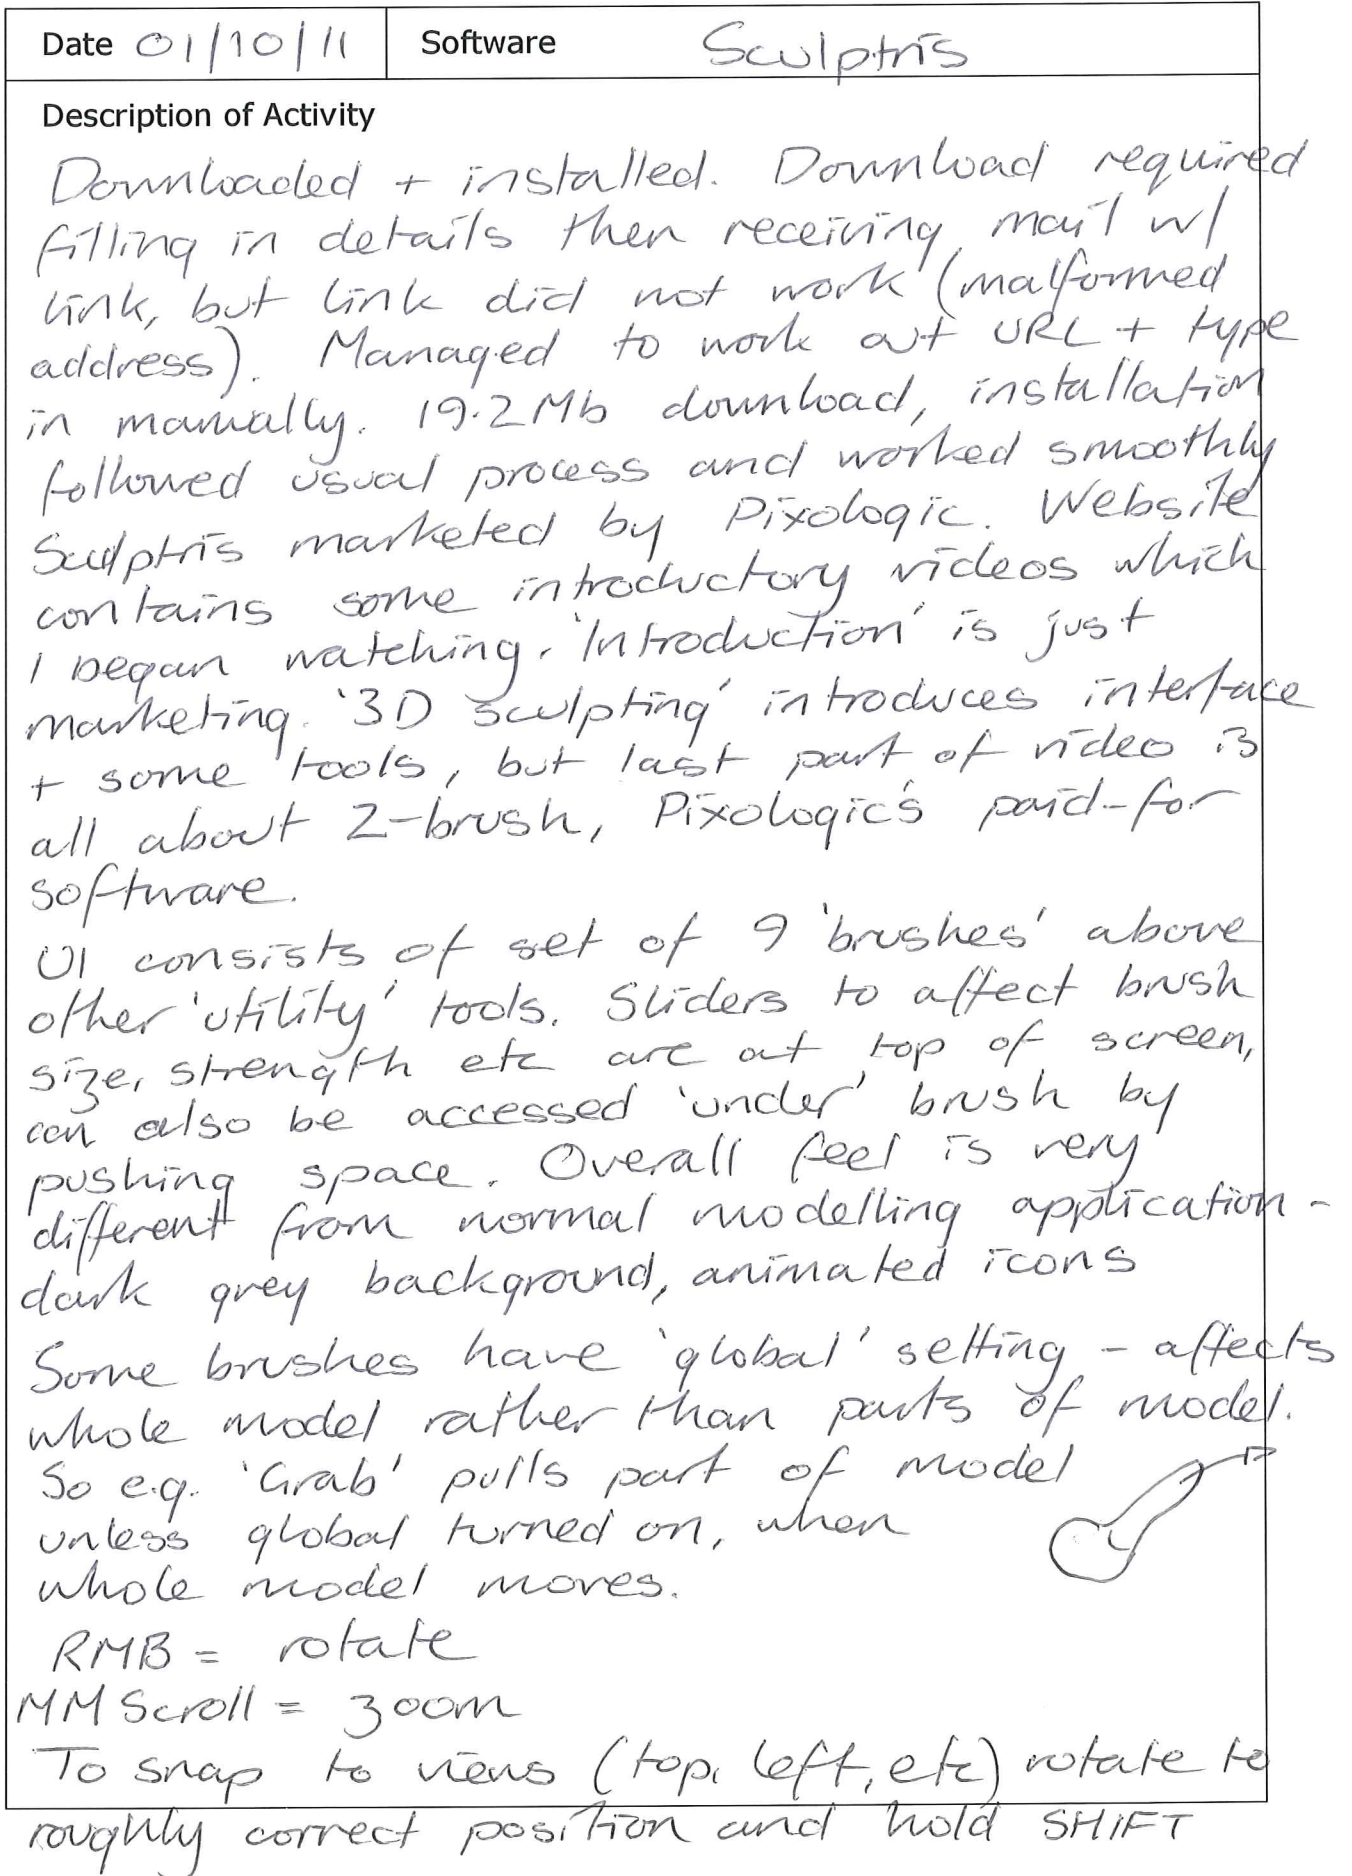 Date 01/10/11 Software Sculptris
Description of Activity
Downloaded + installed. Download required
filling in details then receiving mail w/
link, but link did not work (malformed
address). Managed to work out URL + type
in manually. 19.2Mb download, installation
followed usual process and worked smoothly
Sculptris marketed by Pixologic. Website
contains some introductory videos which
I began watching. 'Introduction' is just
marketing. '3D sculpting' introduces interface
+ some tools, but last part of video is
all about Z-brush, Pixologic's paid-for
software.
UI consists of set of 9 'brushes' above
other 'utility' tools. Sliders to affect brush
size, strength etc are at top of screen,
can also be accessed 'under' brush by
pushing space. Overall feel is very
different from normal modelling application -
dark grey background, animated icons
Some brushes have 'global' setting - affects
whole model rather than parts of model.
So e.g. 'Grab' pulls part of model
unless global turned on, when
whole model moves.
RMB = rotate
MM Scroll = zoom
To snap to views (top, left, etc) rotate to
roughly correct position and hold SHIFT